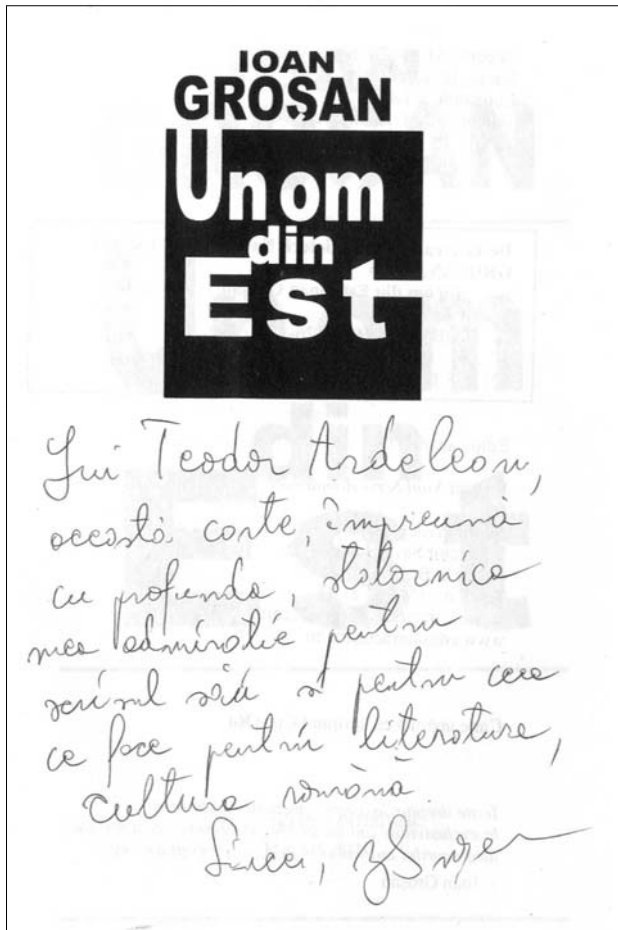 IOAN
GROȘAN
Un om
din
Est
Lui Teodor Ardelean,
această carte, împreună
cu profunda, statornica
mea admirație pentru
scrisul său și pentru ceea
ce face pentru literatura,
cultura română.